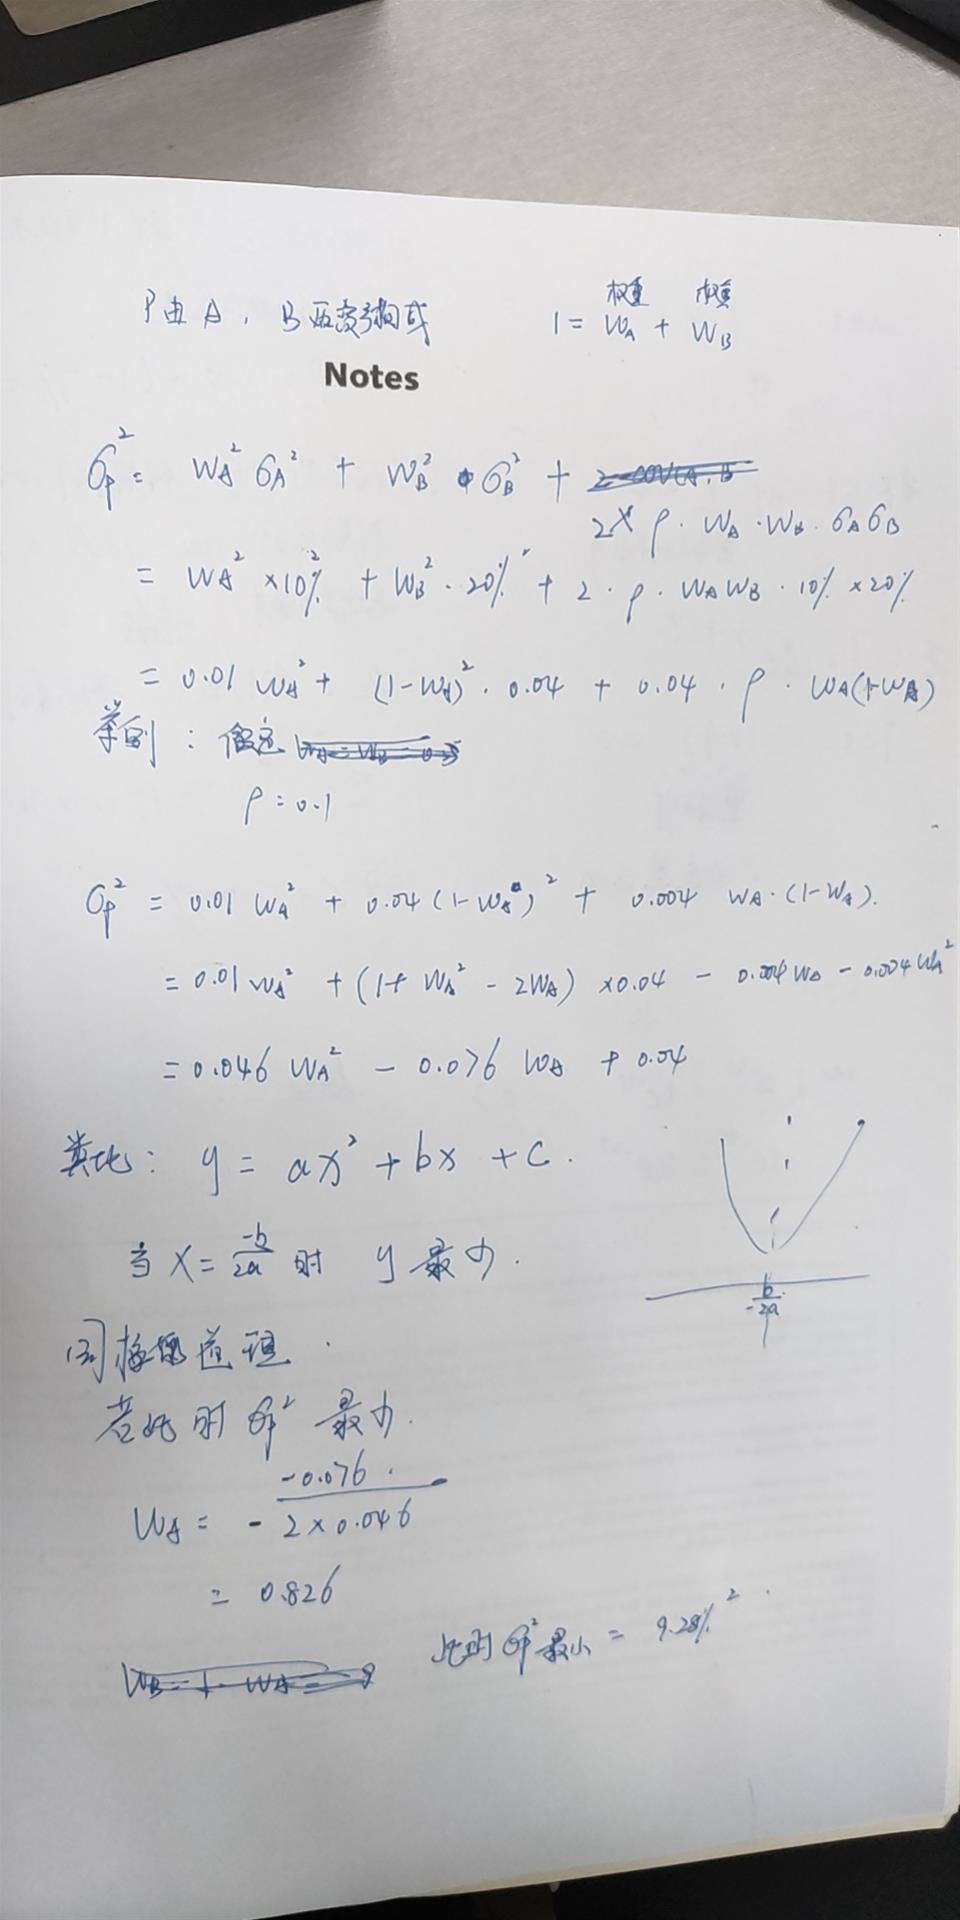 P由A，B两资产构成
权重 权重
1 = W_A + W_B
Notes
σ_P² = W_A² σ_A² + W_B² · σ_B² +
2 × ρ · W_A · W_B · σ_A σ_B
= W_A² × 10%² + W_B² · 20%² + 2 · ρ · W_A W_B · 10% × 20%
= 0.01 W_A² + (1-W_A)² · 0.04 + 0.04 · ρ · W_A(1-W_A)
举例：假定
ρ = 0.1
σ_P² = 0.01 W_A² + 0.04 (1-W_A)² + 0.004 W_A · (1-W_A).
= 0.01 W_A² + (1+ W_A² - 2W_A) × 0.04 - 0.004 W_A - 0.004 W_A²
= 0.046 W_A² - 0.076 W_A + 0.04
类比： y = ax² + bx + c .
当 x = -b/2a 时 y 最小 .
-b/2a
同样的道理 .
若此时 σ_P² 最小.
W_A = - -0.076 / 2 × 0.046
= 0.826
此时 σ_P² 最小 = 9.28%²